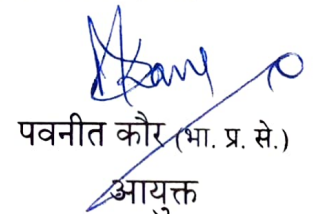 पवनीत कौर (भा. प्र. से.)
आयुक्त